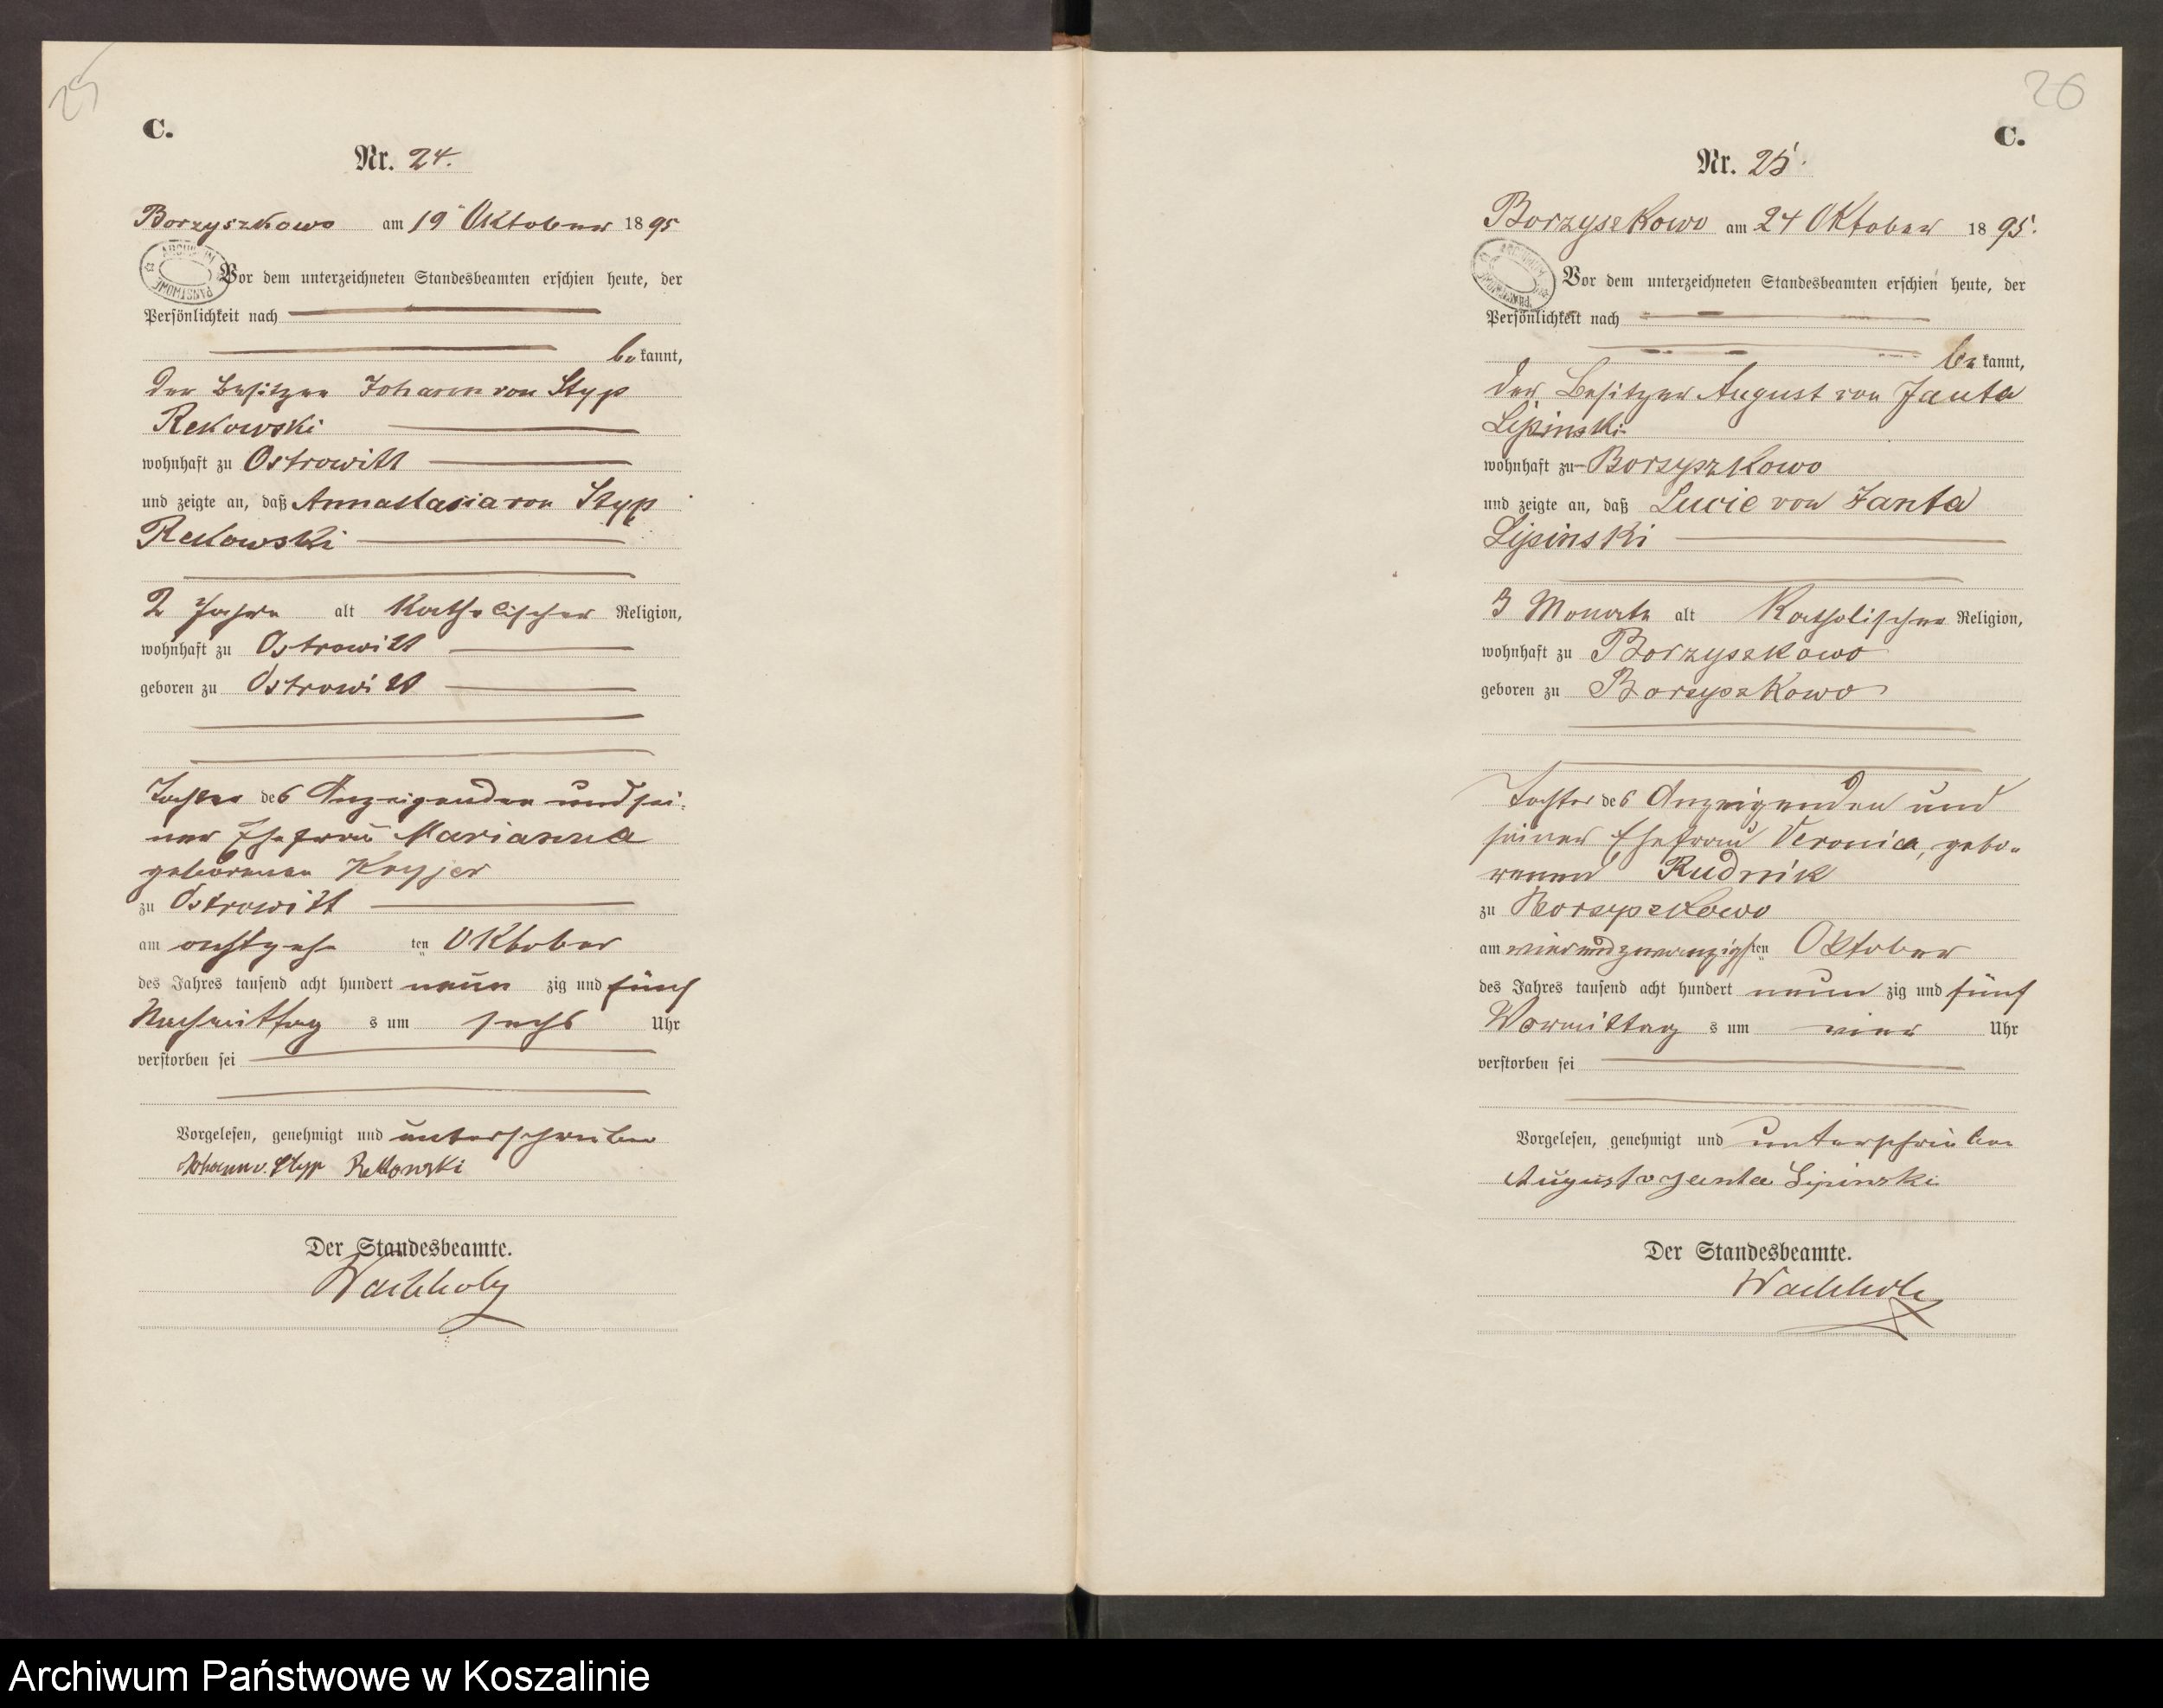 25
C.
Nr. 24.
Borzyszkowo am 19 Oktober 1895
Vor dem unterzeichneten Standesbeamten erschien heute, der
Persönlichkeit nach
bekannt,
der Besitzer Johann von Styp
Rekowski
wohnhaft zu Ostrowitt
und zeigte an, daß Annastasia von Styp
Rekowski
2 Jahre alt Katholischer Religion,
wohnhaft zu Ostrowitt
geboren zu Ostrowitt
Tochter des Anzeigenden und sei-
ner Ehefrau Marianna
geborenen
zu Ostrowitt
am achtzehnten Oktober
des Jahres tausend acht hundert neunzig und fünf
Nachmittags um sechs Uhr
verstorben sei
Vorgelesen, genehmigt und unterschrieben
Johann v. Styp Rekowski
Der Standesbeamte.
Wachholz
26
C.
Nr. 25.
Borzyszkowo am 24 Oktober 1895.
Vor dem unterzeichneten Standesbeamten erschien heute, der
Persönlichkeit nach
bekannt,
der Besitzer August von Janta
Lipinski
wohnhaft zu Borzyszkowo
und zeigte an, daß Lucie von Janta
Lipinski
3 Monate alt Katholischer Religion,
wohnhaft zu Borzyszkowo
geboren zu Borzyszkowo
Tochter des Anzeigenden und
seiner Ehefrau Veronica, gebo-
renen Rudnik
zu Borzyszkowo
am vierundzwanzigsten Oktober
des Jahres tausend acht hundert neunzig und fünf
Vormittags um vier Uhr
verstorben sei
Vorgelesen, genehmigt und unterschrieben
August v Janta Lipinski
Der Standesbeamte.
Wachholz
Archiwum Państwowe w Koszalinie